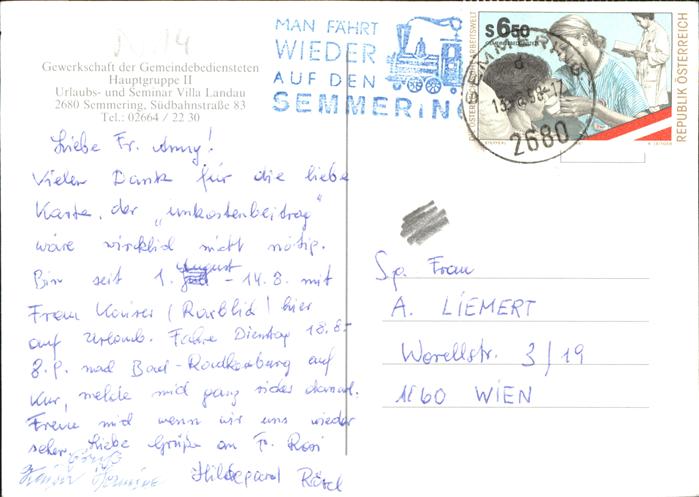 Nr. 14
Gewerkschaft der Gemeindebediensteten
Hauptgruppe II
Urlaubs- und Seminar Villa Landau
2680 Semmering, Südbahnstraße 83
Tel.: 02664 / 22 30
MAN FÄHRT
WIEDER
AUF DEN
SEMMERING
S 6.50
REPUBLIK ÖSTERREICH
2680
Liebe Fr. Anny!
Vielen Dank für die liebe
Karte, der „Unkostenbeitrag"
wäre wirklich nicht nötig.
Bin seit 1. August - 14.8. mit
Frau Kaiser (Rückbild) hier
auf Urlaub. Fahre Dienstag 18.8.-
8.9. nach Bad-Radkersburg auf
Kur, melde mich ganz sicher danach.
Freue mich wenn wir uns wieder
sehen, Liebe Grüße an Fr. Rosi
Hildegard
Gruß
Kaiser Hermine
Sp. Frau
A. LIEMERT
Worellstr. 3/19
1160 WIEN